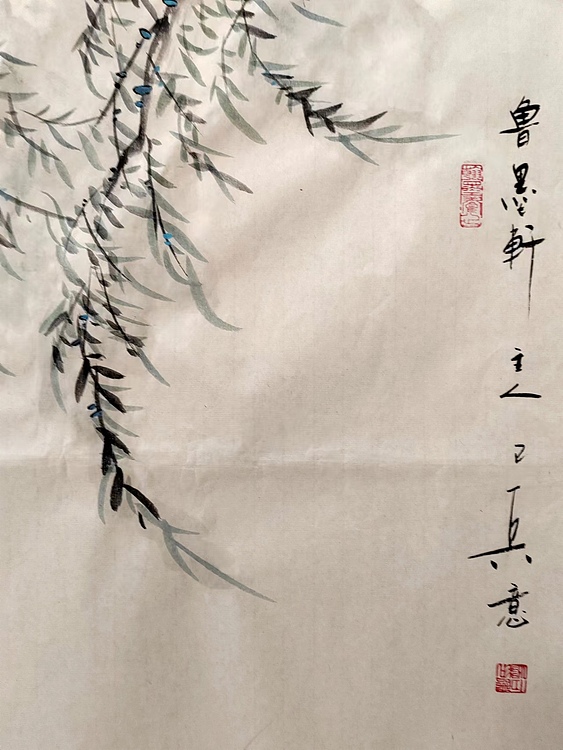 魯墨軒 主人 己 真 意